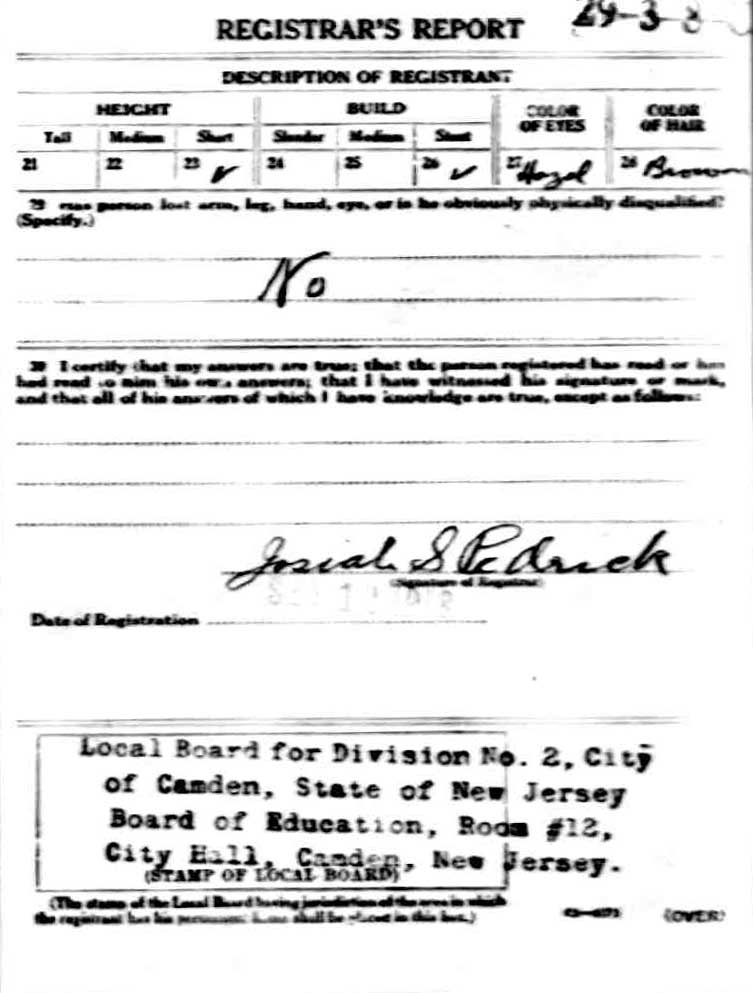 REGISTRAR'S REPORT 29-3-8
DESCRIPTION OF REGISTRANT
HEIGHT BUILD COLOR OF EYES COLOR OF HAIR
Tall Medium Short Slender Medium Stout
21 22 23 ✓ 24 25 26 ✓ 27 Hazel 28 Brown
29 Has person lost arm, leg, hand, eye, or is he obviously physically disqualified?
(Specify.)
No
30 I certify that my answers are true; that the person registered has read or has
had read to him his own answers; that I have witnessed his signature or mark,
and that all of his answers of which I have knowledge are true, except as follows:
Josiah S Pedrick
(Signature of Registrar)
Date of Registration
Local Board for Division No. 2, City
of Camden, State of New Jersey
Board of Education, Room #12,
City Hall, Camden, New Jersey.
(STAMP OF LOCAL BOARD)
(The stamp of the Local Board having jurisdiction of the area in which
the registrant has his permanent home shall be placed in this box.)
(OVER)